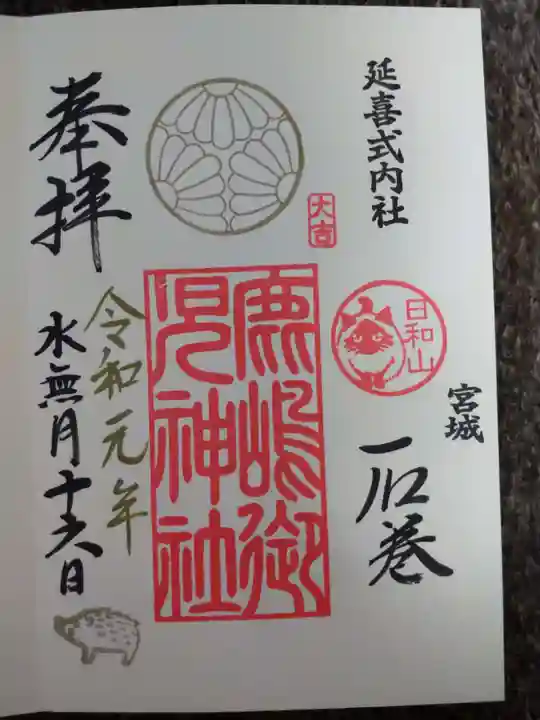 延喜式内社
大吉
日和山
宮城
石巻
鹿嶋御
児神社
奉拝
令和元年
水無月十六日